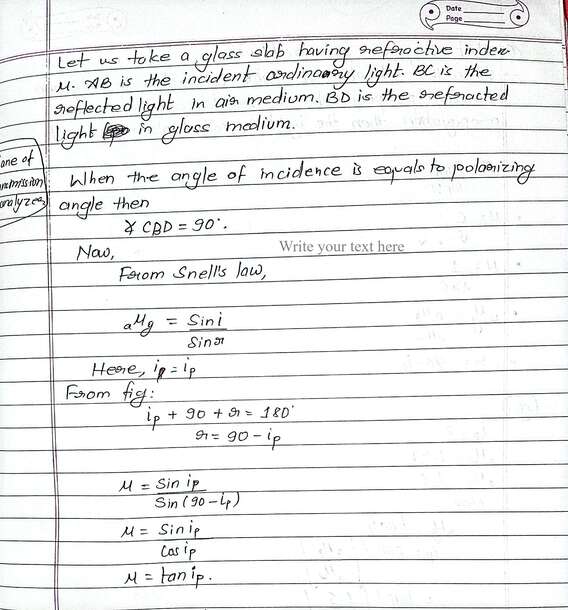 Date
Page
Let us take a glass slab having refractive index
μ. AB is the incident ordinary light. BC is the
reflected light in air medium. BD is the refracted
light in glass medium.
ane of
analyzer
When the angle of incidence is equals to polarizing
angle then
∡ CBD = 90°.
Now,
Write your text here
From Snell's law,
aμg = Sin i / Sin r
Here, ip = ip
From fig:
ip + 90 + r = 180°
r = 90 - ip
μ = Sin ip / Sin (90 - ip)
μ = Sin ip / Cos ip
μ = tan ip.